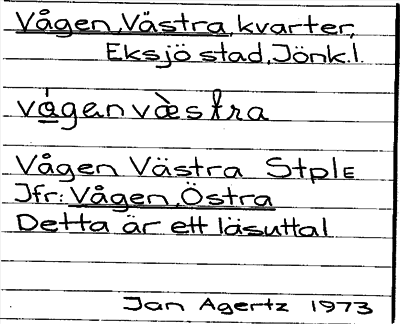 Vågen, Västra, kvarter,
Eksjö stad, Jönk. l.
vågan væstra
Vågen Västra StplE
Jfr: Vågen, Östra
Detta är ett läsuttal
Jan Agertz 1973